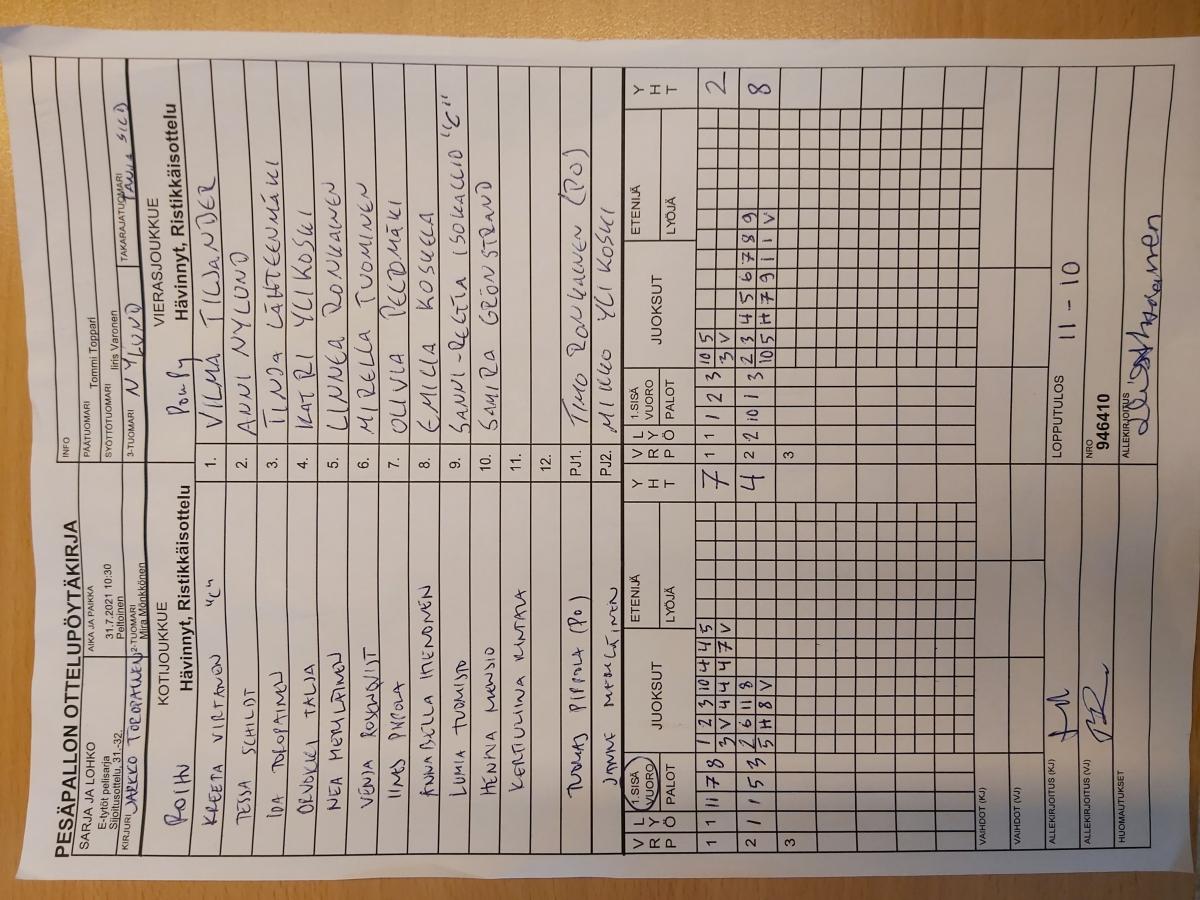 PESÄPALLON OTTELUPÖYTÄKIRJA
SARJA JA LOHKO
E-tytöt pelisarja
Sijoitusottelu, 31.-32.
AIKA JA PAIKKA
31.7.2021 10:30
Peltoinen
INFO
PÄÄTUOMARI Tommi Toppari
SYÖTTÖTUOMARI Iiris Varonen
KIRJURI JARKKO TOROPAINEN
2-TUOMARI Mira Mönkkönen
3-TUOMARI NYLUND
TAKARAJATUOMARI
KOTIJOUKKUE
Hävinnyt, Ristikkäisottelu
VIERASJOUKKUE
PouPy
Hävinnyt, Ristikkäisottelu
KREETA VIRTANEN "C" 1. VILMA TILJANDER
TESSA SCHILDT 2. ANNI NYLUND
IDA TOROPAINEN 3. TINJA LÄHTEENMÄKI
TALJA 4. KATRI YLIKOSKI
NEA 5. LINNEA RONKAINEN
VENJA ROSENQVIST 6. MIRELLA TUOMINEN
IINES PIPPOLA 7. OLIVIA PELTOMÄKI
ANNABELLA IHENONEN 8. EMILIA KOSKELA
LUMIA TUOMISTO 9. SANNI-REETTA ISOKALLIO "C"
HENNA 10. SAMIRA GRÖNSTRAND
KERTULIINA RINTALA 11.
12.
TUOMAS PIPPOLA (PO) PJ1. TIMO RONKAINEN (PO)
JANNE PJ2. MIKKO YLIKOSKI
VRP LYÖ 1.SISÄ VUORO PALOT JUOKSUT ETENIJÄ LYÖJÄ YHT VRP LYÖ 1.SISÄ VUORO PALOT JUOKSUT ETENIJÄ LYÖJÄ YHT
1 1 11 7 8 1 2 3 10 4 4 5 7 1 1 1 2 3 10 5 2
3 V 4 4 4 7 V 3 V
2 1 1 5 3 2 6 11 8 4 2 2 10 1 3 2 3 4 5 6 7 8 9 8
5 H 8 V 10 5 H 7 9 1 1 V
3 3
VAIHDOT (KJ)
VAIHDOT (VJ)
ALLEKIRJOITUS (KJ) LOPPUTULOS 11 - 10
ALLEKIRJOITUS (VJ) NRO 946410
HUOMAUTUKSET ALLEKIRJOITUS